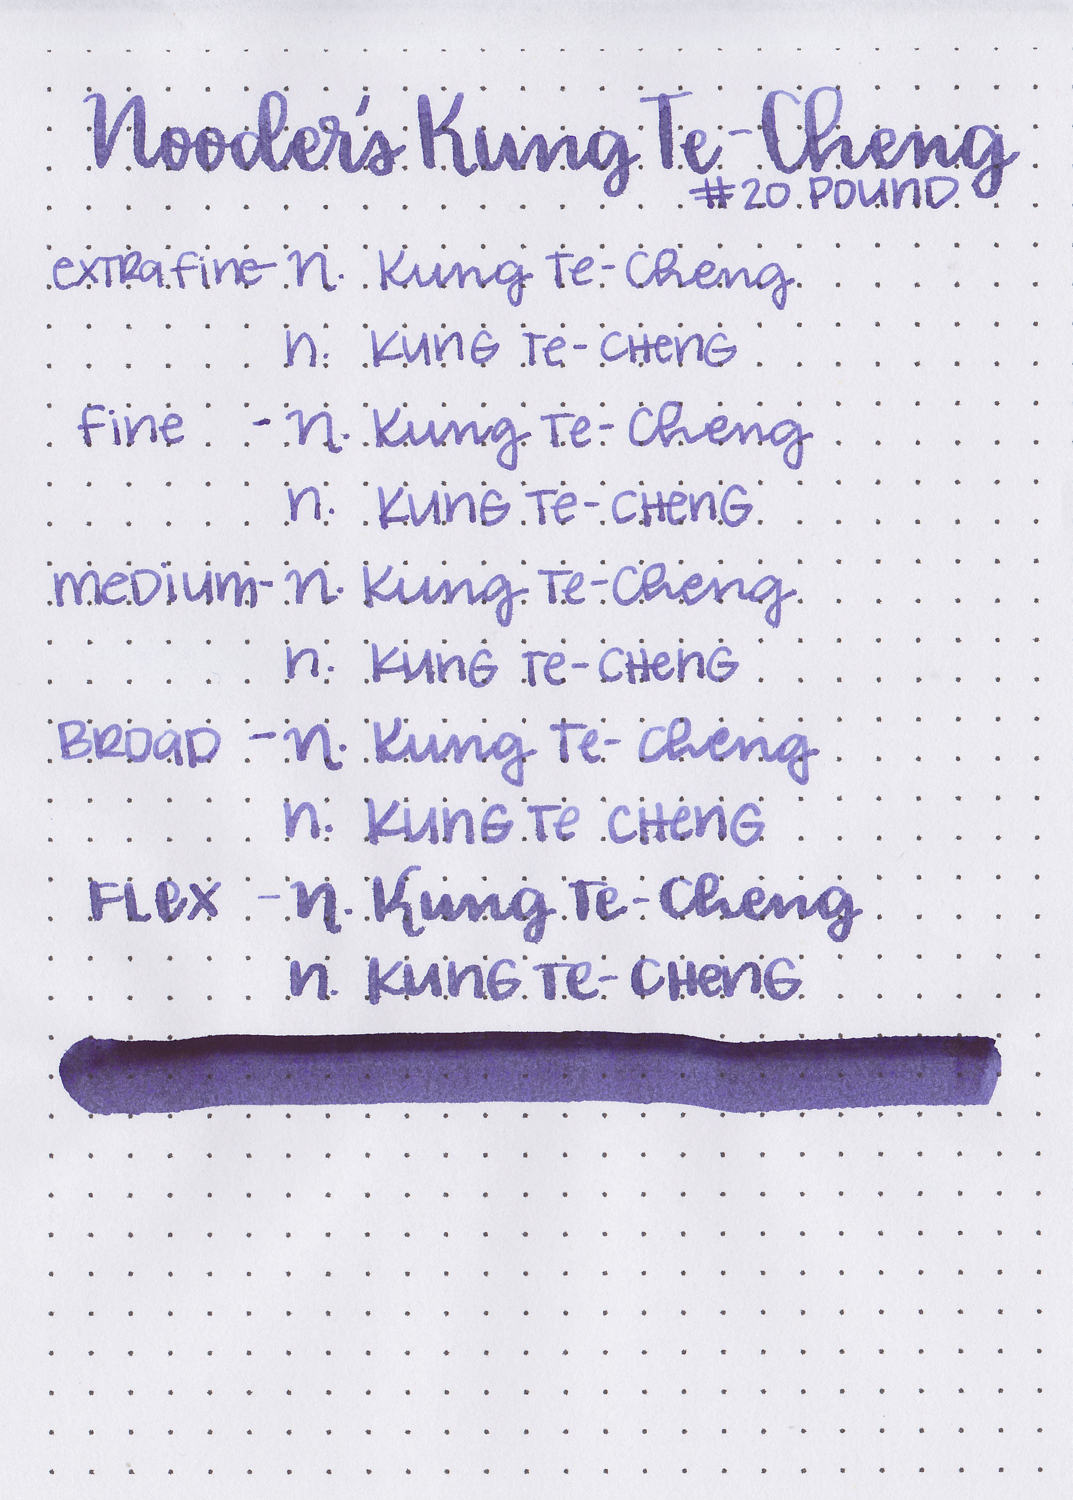 Nooder's Kung Te-Cheng
#20 POUND
extra fine - n. Kung Te-Cheng
n. KUNG Te-CHENG
fine - n. Kung Te-Cheng
n. KUNG Te-CHENG
medium - n. Kung Te-Cheng
n. KUNG Te-CHENG
BROAD - n. Kung Te-Cheng
n. KUNG Te CHENG
FLex - n. Kung Te-Cheng
n. KUNG Te-CHENG